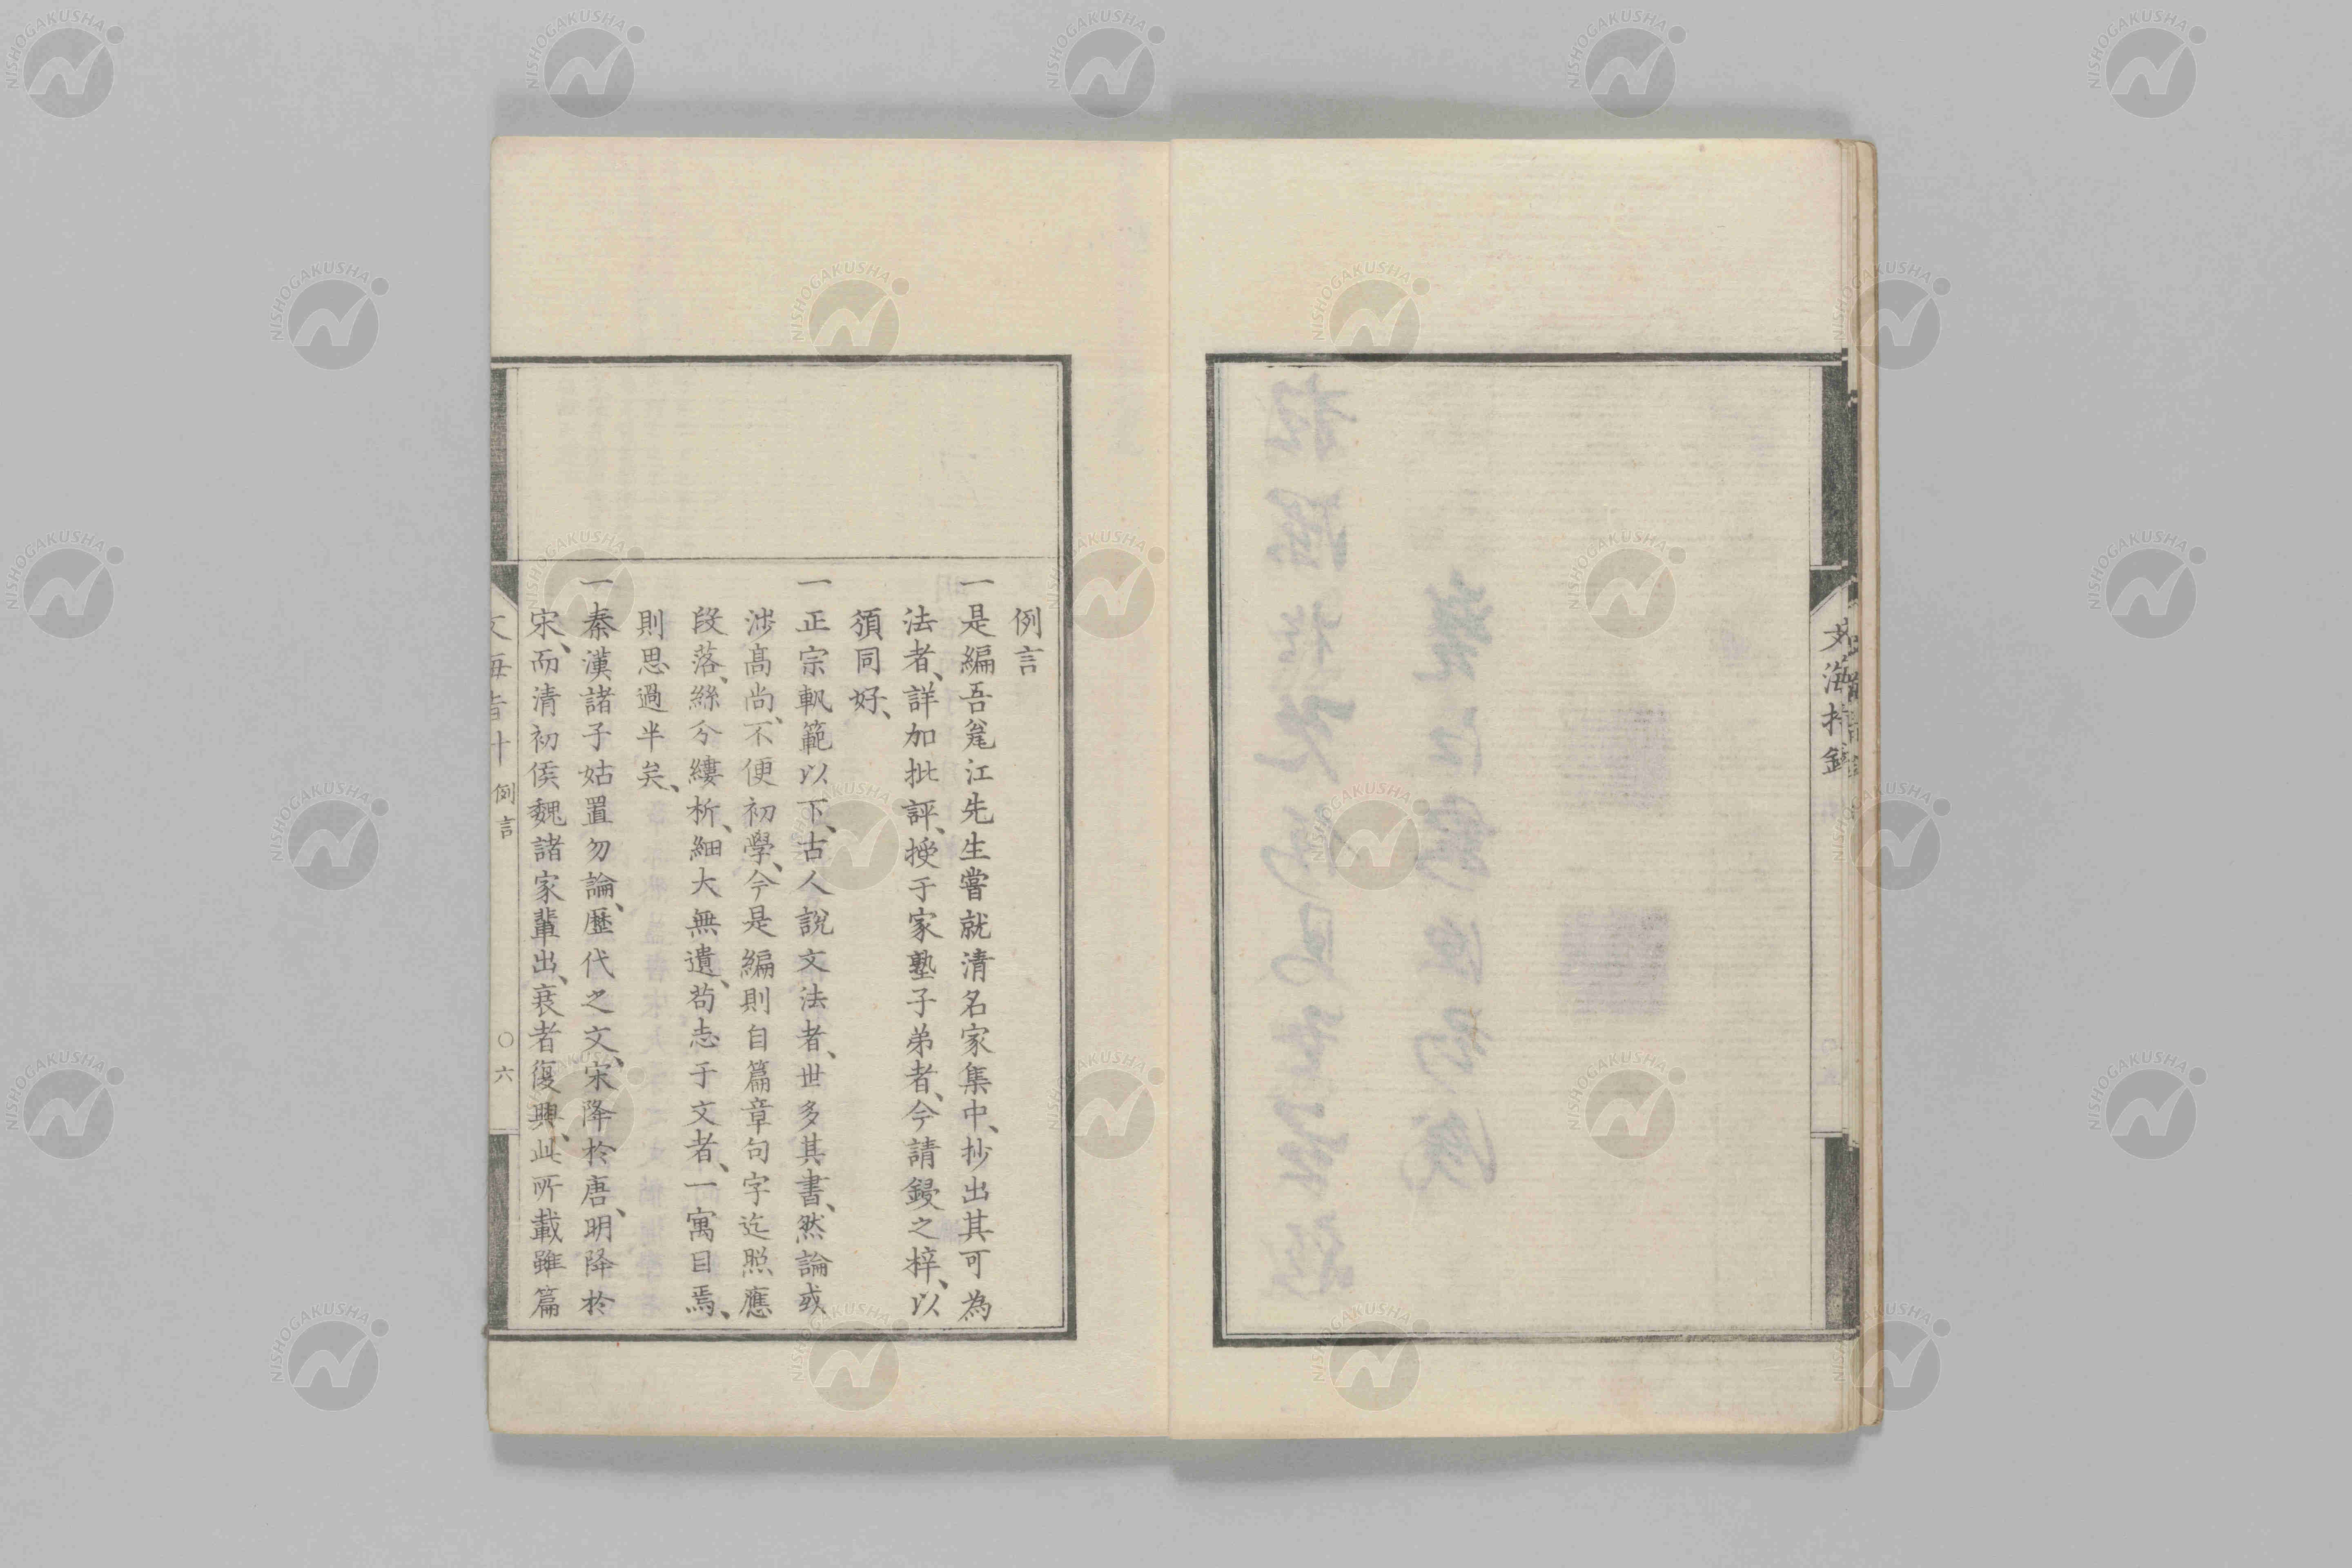 文海指針
例言
一是編吾毣江先生嘗就清名家集中、抄出其可為
法者、詳加批評、授于家塾子弟者、今請鋟之梓、以
頒同好、
一正宗軌範以下、古人說文法者、世多其書、然論或
涉高尚、不便初學、今是編則自篇章句字迄照應
段落、絲分縷析、細大無遺、苟志于文者、一寓目焉、
則思過半矣、
一秦漢諸子姑置勿論、歷代之文、宋降於唐、明降於
宋、而清初侯魏諸家輩出、衰者復興、此所載雖篇
例言
〇六
NISHOGAKUSHA